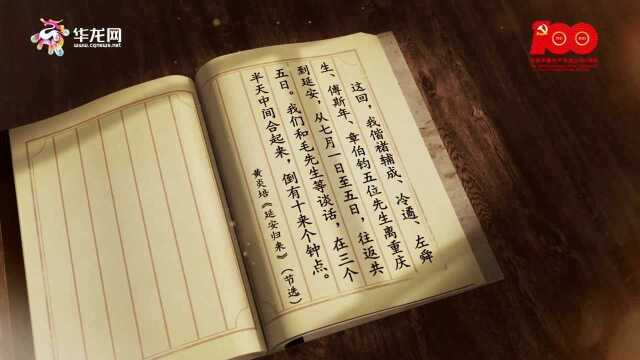 华龙网
www.cqnews.net
100
这回，我偕褚辅成、冷遹、左舜
生、傅斯年、章伯钧五位先生离重庆
到延安，从七月一日至五日，往返共
五日。我们和毛先生等谈话，在三个
半天中间合起来，倒有十来个钟点。
黄炎培《延安归来》（节选）